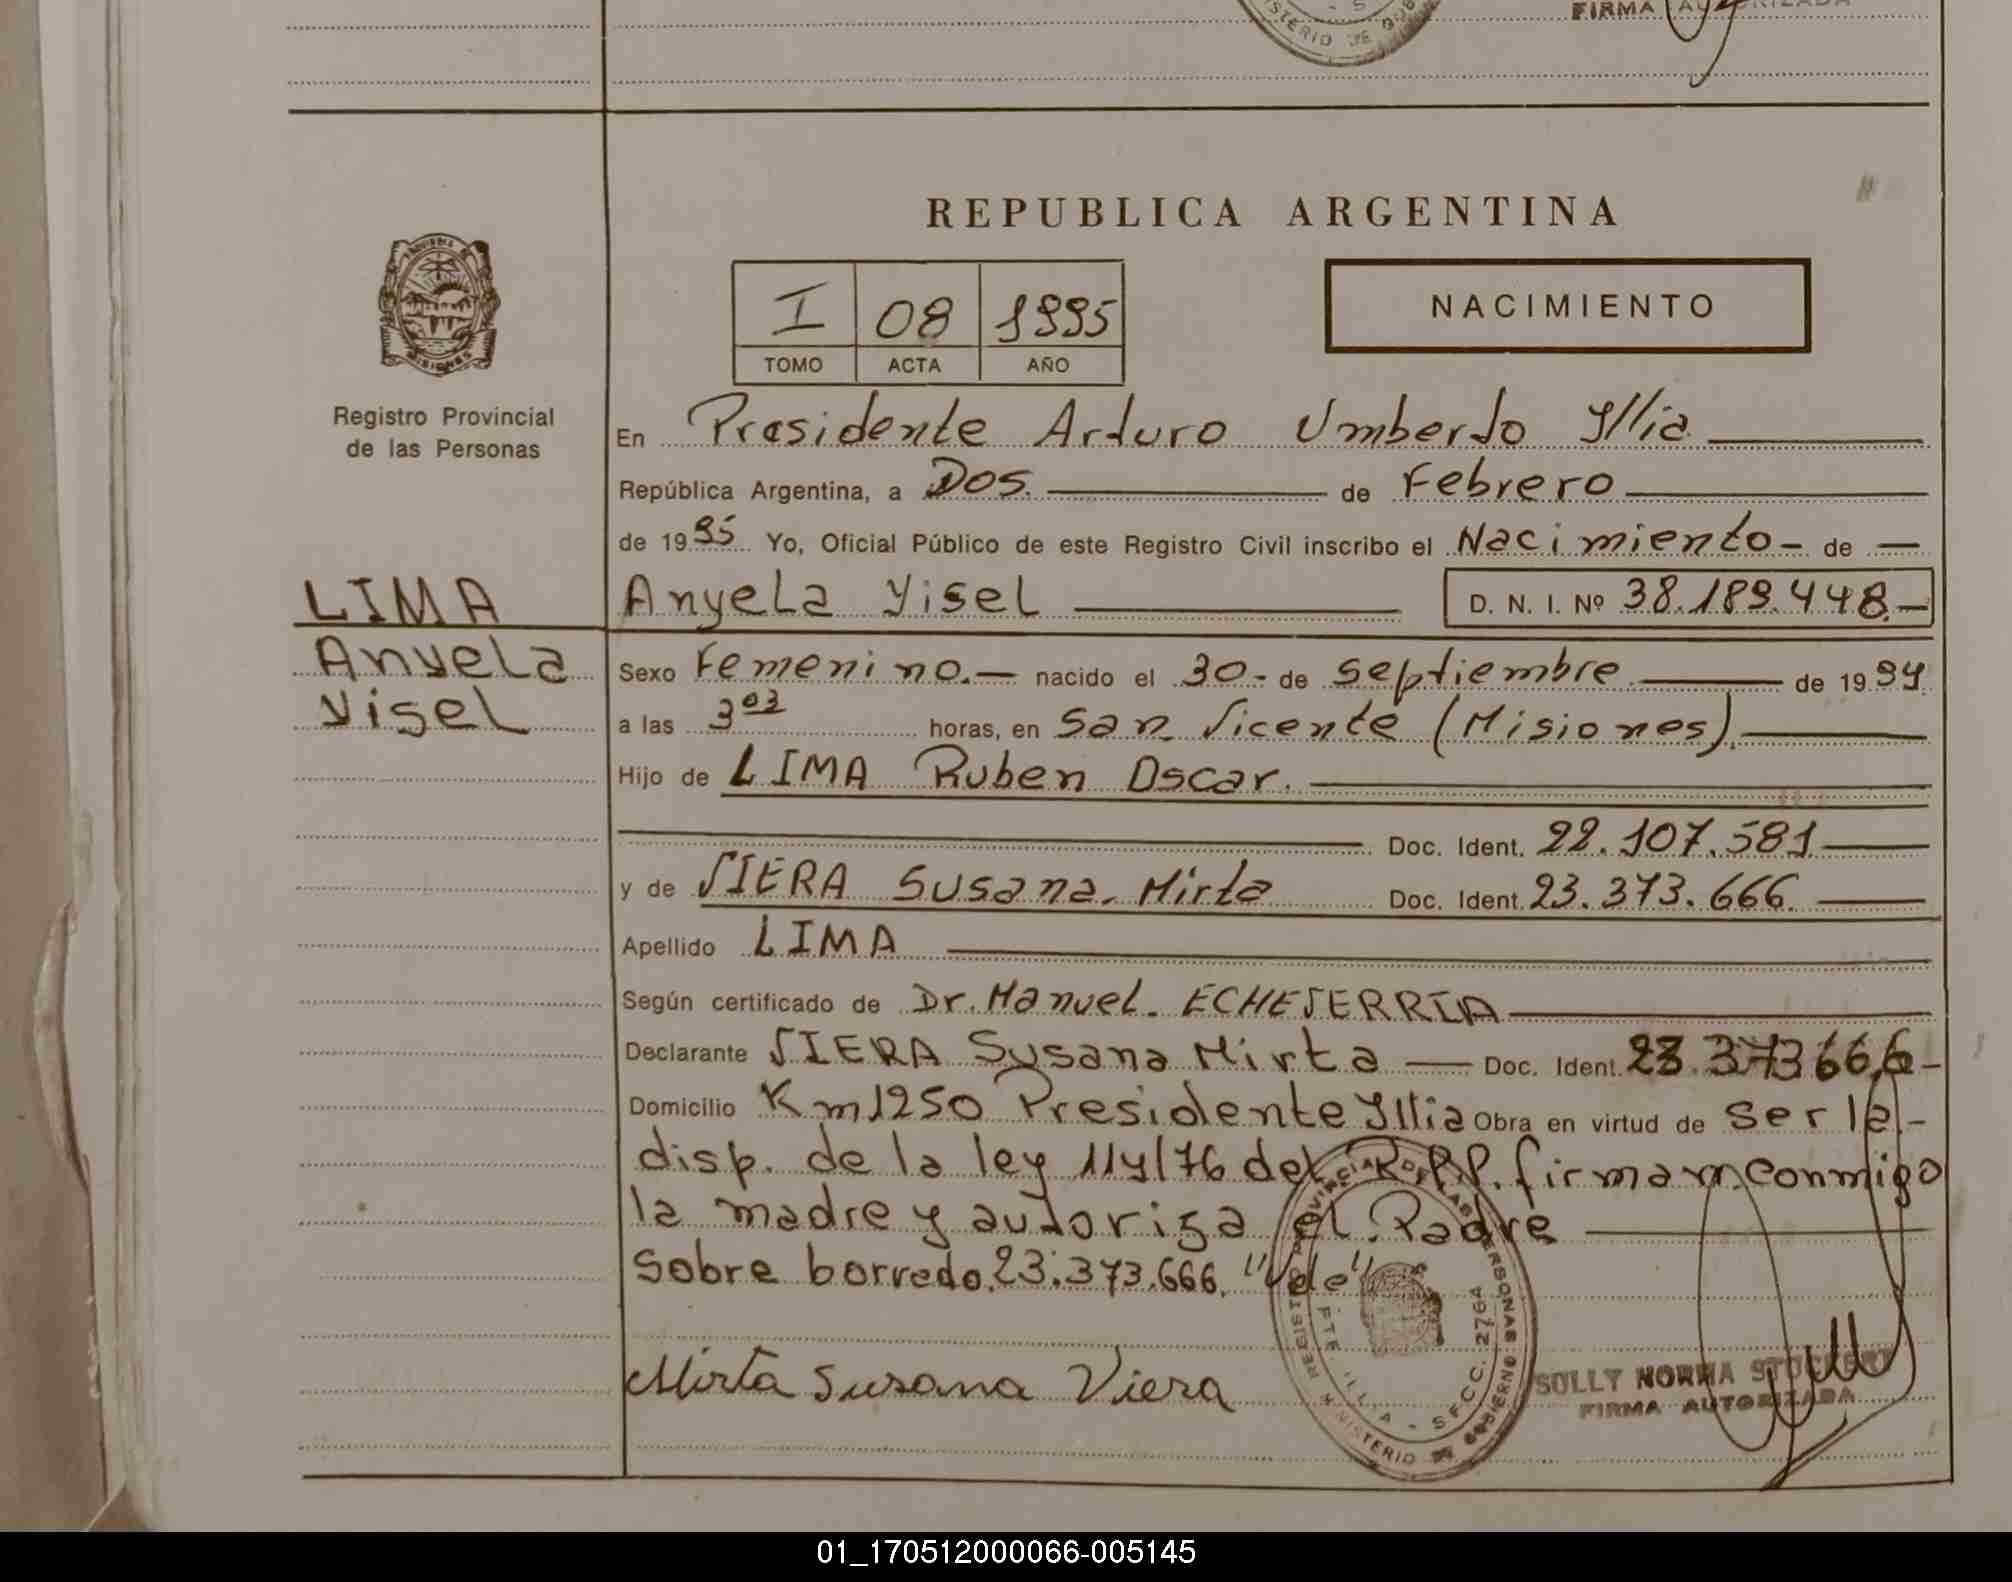 FIRMA AUTORIZADA
REPUBLICA ARGENTINA
I 08 1995
TOMO ACTA AÑO
NACIMIENTO
Registro Provincial
de las Personas
En Presidente Arturo Umberto Yllia
República Argentina, a Dos. de Febrero
de 1995 Yo, Oficial Público de este Registro Civil inscribo el Nacimiento - de —
LIMA Anyela Yisel D. N. I. Nº 38.189.448.-
Anyela Sexo Femenino.— nacido el 30- de septiembre de 1994
Yisel a las 3 03 horas, en San Vicente (Misiones).
Hijo de LIMA Ruben Oscar.
Doc. Ident. 22.107.581
y de VIERA Susana Mirta Doc. Ident. 23.373.666.
Apellido LIMA
Según certificado de Dr. Manuel. ECHEVERRIA
Declarante VIERA Susana Mirta — Doc. Ident. 23.373666-
Domicilio Km1250 Presidente Yllia Obra en virtud de ser la-
disp. de la ley 114/76 del R.P.P. firman conmigo
la madre y autoriza el Padre
Sobre borredo.23.373.666. "Vele"
Mirta Susana Viera
REGISTRO PROVINCIAL DE LAS PERSONAS
MINISTERIO DE GOBIERNO
PTE. ILLIA - SECC. 2764
SULLY NORMA
FIRMA AUTORIZADA
01_170512000066-005145